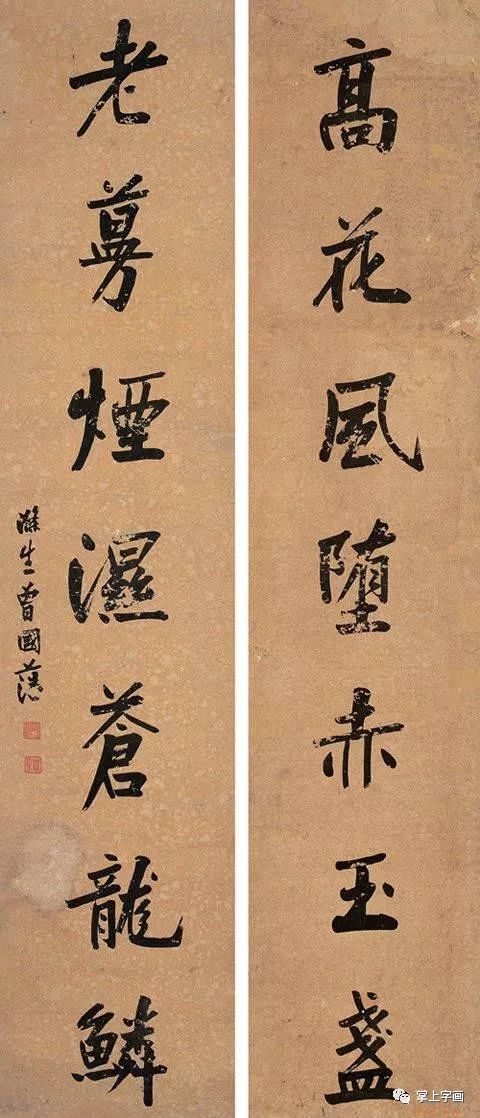 髙花風堕赤玉盞
老蔓煙濕蒼龍鱗
滌生曾國藩
掌上字画